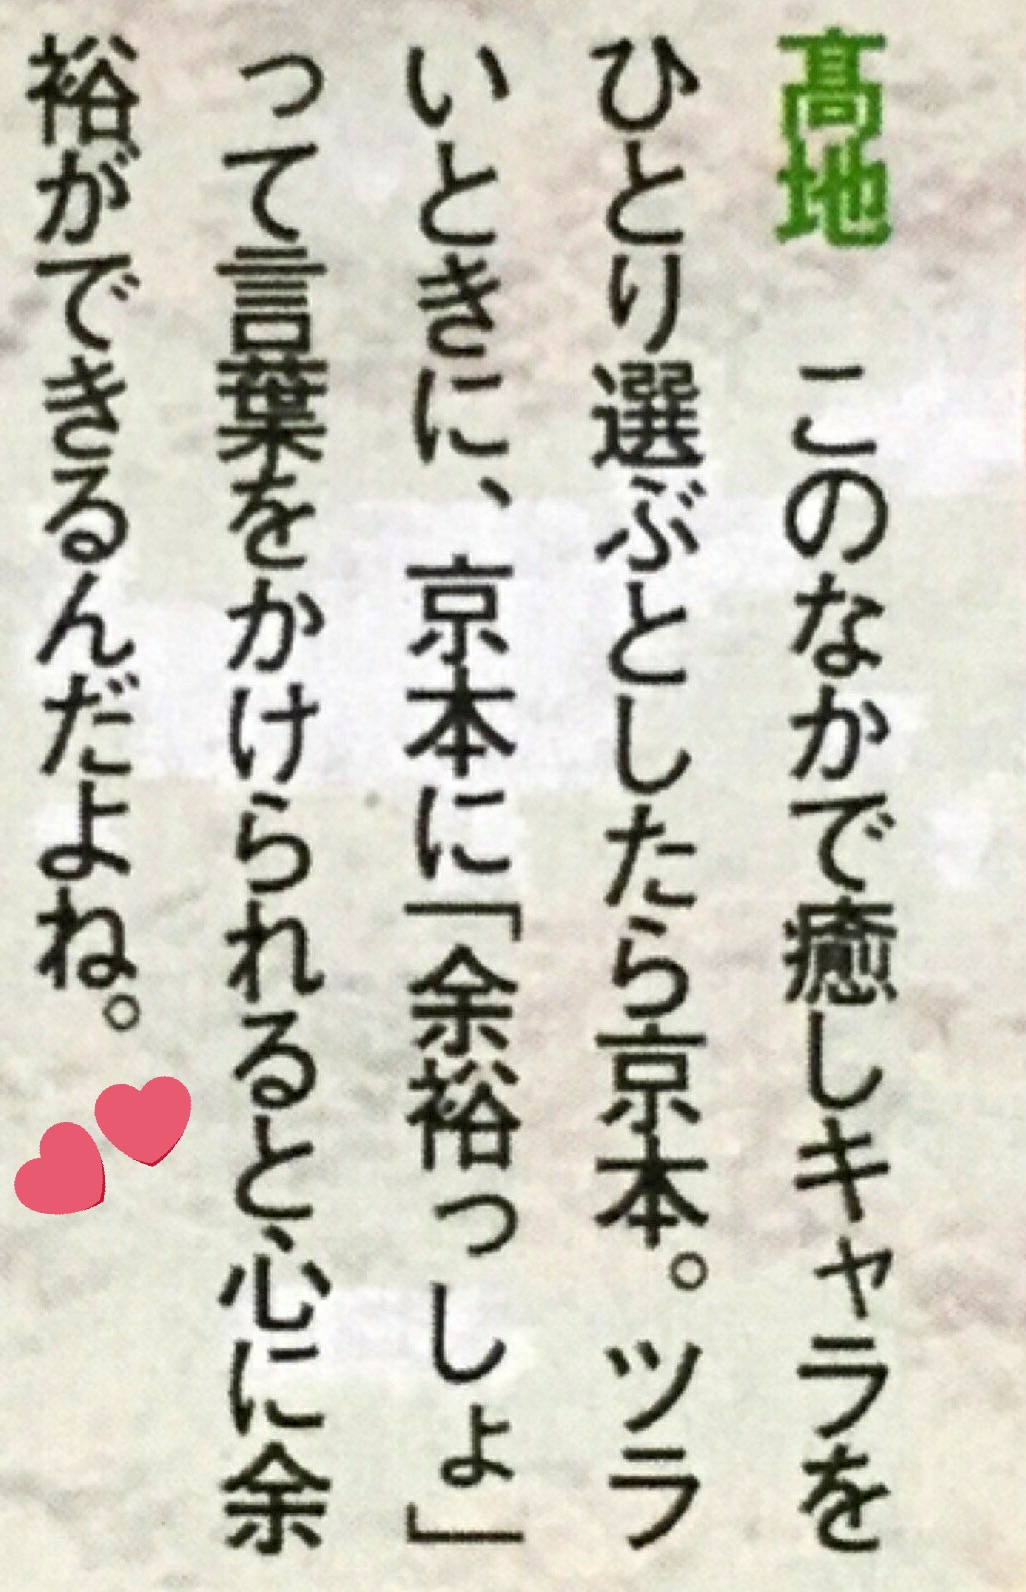 髙地　このなかで癒しキャラを
ひとり選ぶとしたら京本。ツラ
いときに、京本に「余裕っしょ」
って言葉をかけられると、心に余
裕ができるんだよね。